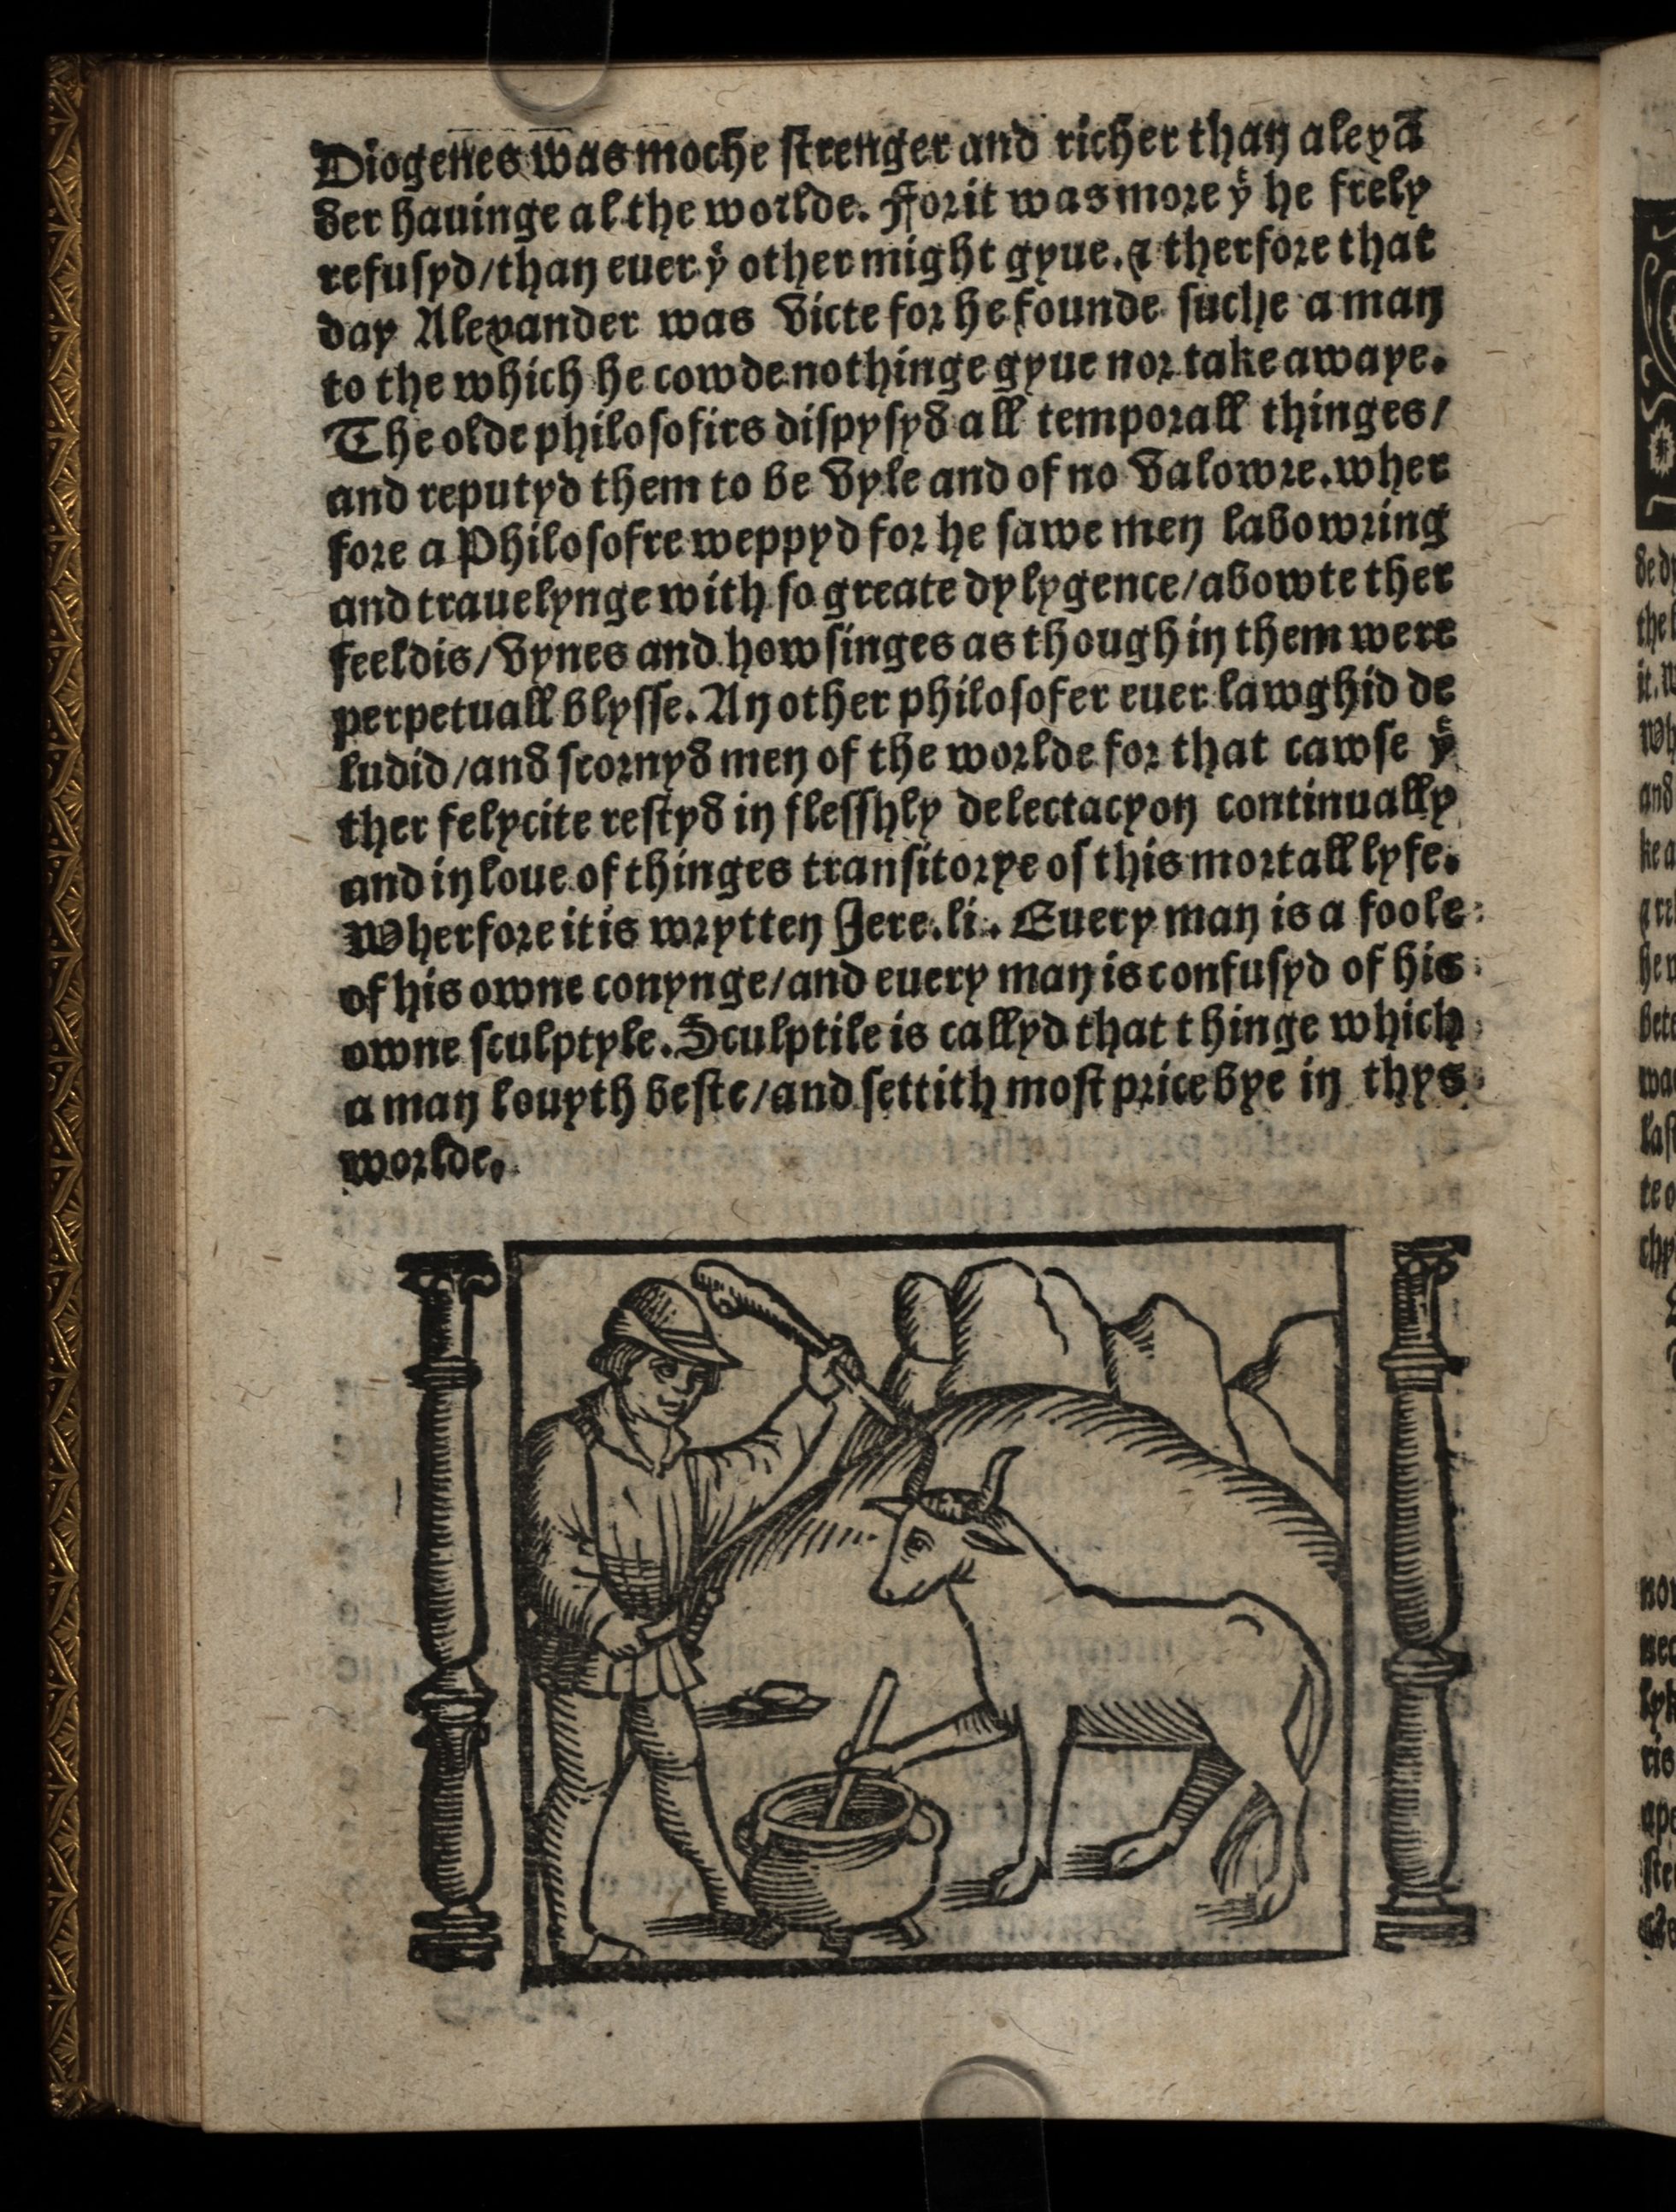 Diogenes was moche strenger and richer than alexā
der hauinge al the worlde. For it was more yͤ he frely
refusyd/than euer yͤ other might gyue. & therfore that
day Alexander was victe for he founde suche a man
to the which he cowde nothinge gyue nor take awaye.
The olde philosofirs dispysyd all temporall thinges/
and reputyd them to be vyle and of no valowre. wher
fore a Philosofre weppyd for he sawe men labowring
and trauelynge with so greate dylygence/abowte ther
feeldis/vynes and howsinges as though in them were
perpetuall blysse. An other philosofer euer lawghid de
ludid/and scornyd men of the worlde for that cawse yͤ
ther felycite restyd in flesshly delectacyon continually
and in loue of thinges transitorye of this mortall lyfe.
Wherfore it is wrytten Jere. li. Euery man is a foole
of his owne conynge/and euery man is confusyd of his
owne sculptyle. Sculptile is callyd that thinge which
a man louyth beste/and settith most price bye in thys
worlde.